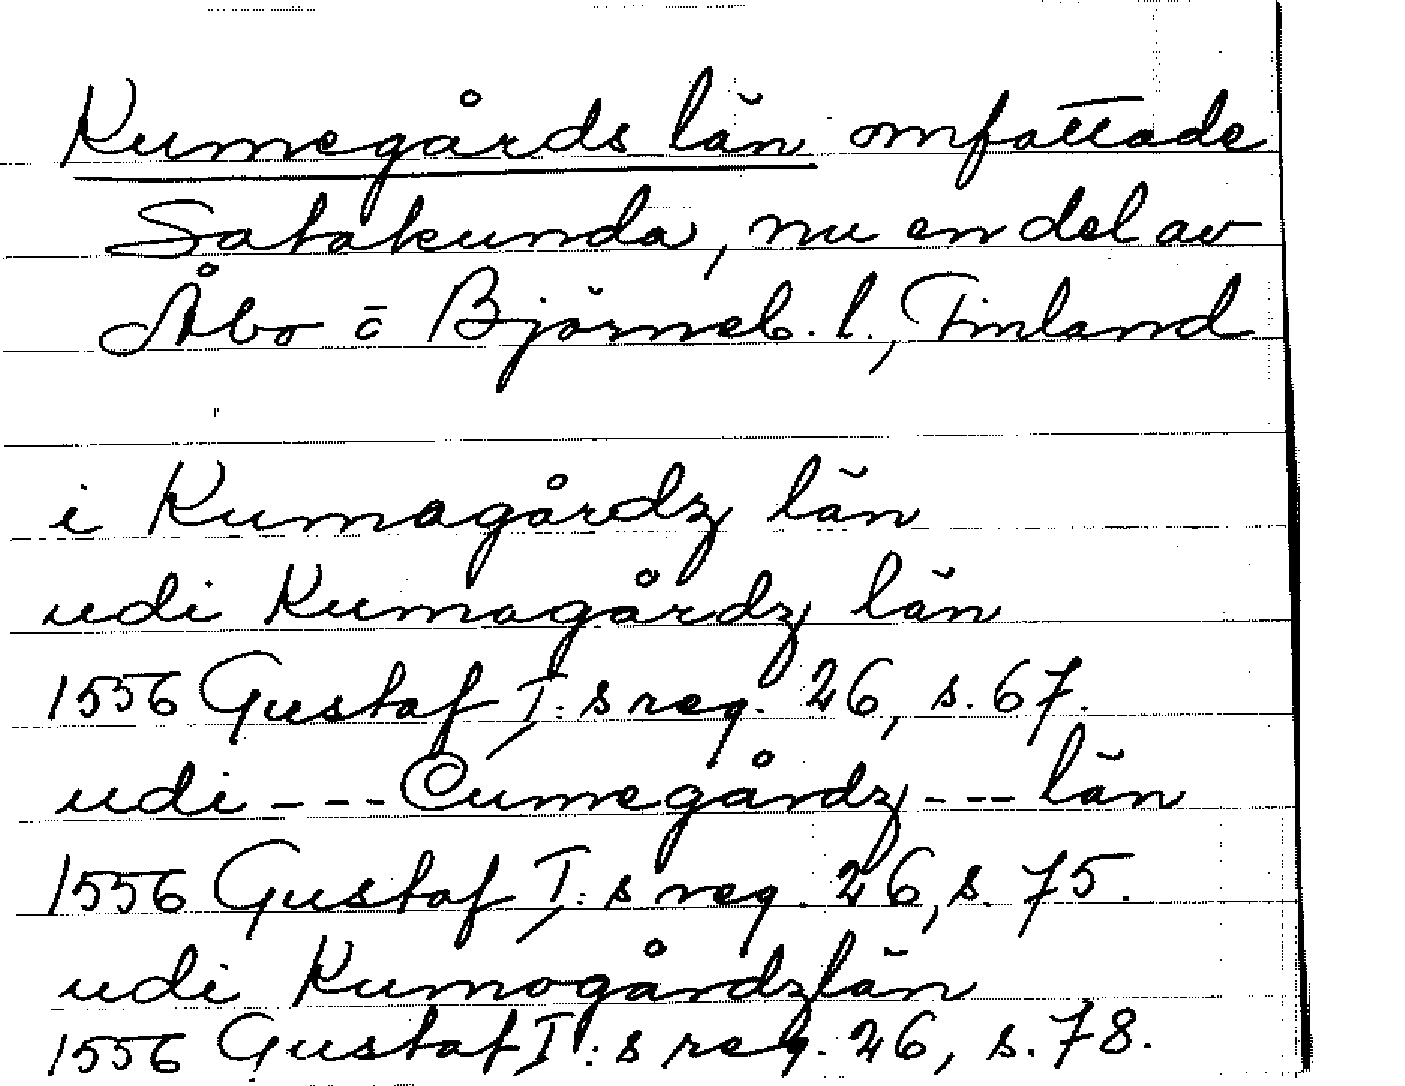 Kumegårds län omfattade
Satakunda, nu en del av
Åbo o Björneb. l., Finland
i Kumagårdz län
udi Kumagårdz län
1556 Gustaf I:s reg. 26, s. 67.
udi --- Cumegårdz --- län
1556 Gustaf I:s reg. 26, s. 75.
udi Kumogårdzlän
1556 Gustaf I:s reg. 26, s. 78.